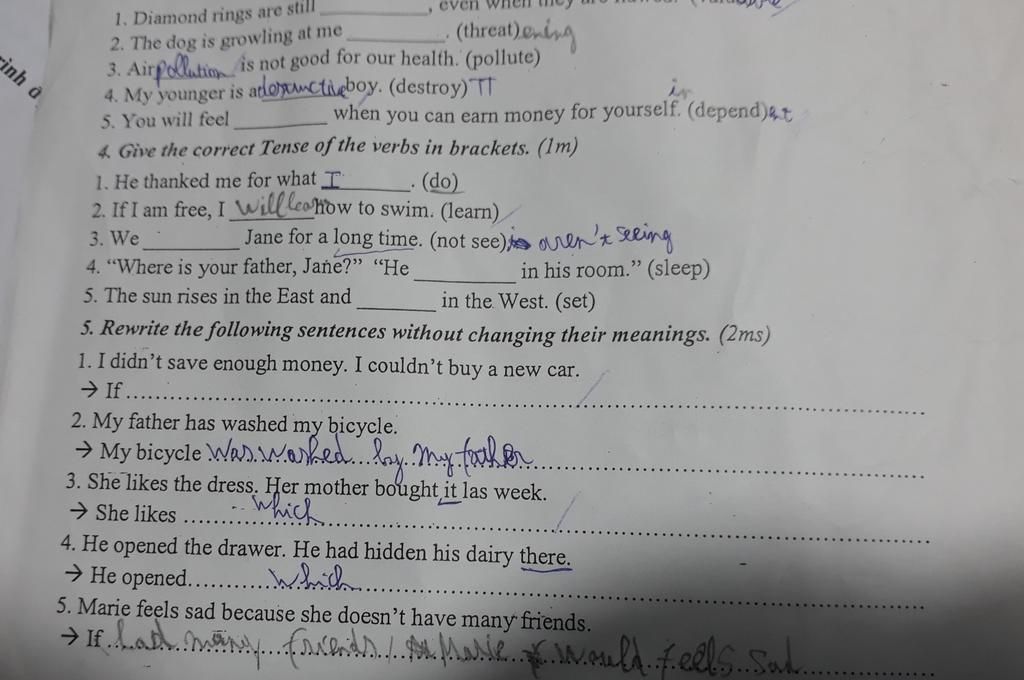 1. Diamond rings are still __________, even when they are
2. The dog is growling at me __________. (threat)ening
3. Air pollution is not good for our health. (pollute)
4. My younger is a boy. (destroy) TT
5. You will feel __________ when you can earn money for yourself. (depend) in
4. Give the correct Tense of the verbs in brackets. (1m)
1. He thanked me for what I __________. (do)
2. If I am free, I will learn how to swim. (learn)
3. We __________ Jane for a long time. (not see) aren't seeing
4. “Where is your father, Jane?” “He __________ in his room.” (sleep)
5. The sun rises in the East and ________ in the West. (set)
5. Rewrite the following sentences without changing their meanings. (2ms)
1. I didn’t save enough money. I couldn’t buy a new car.
→ If
2. My father has washed my bicycle.
→ My bicycle was washed by my father
3. She likes the dress. Her mother bought it las week.
→ She likes which
4. He opened the drawer. He had hidden his dairy there.
→ He opened which
5. Marie feels sad because she doesn’t have many friends.
→ If had many friends / Marie would feels sad